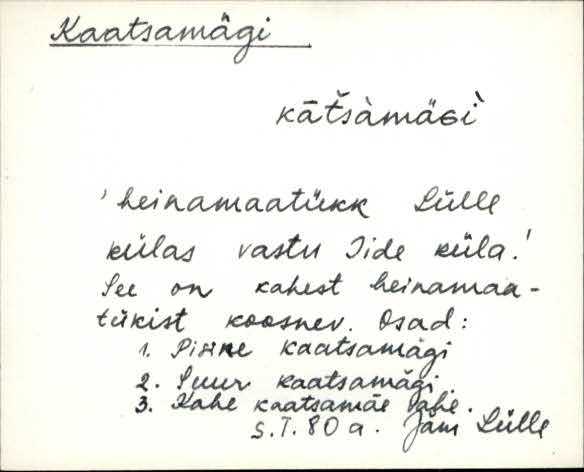 Kaatsamägi
kāt̆sàmäɢì
'heinamaatükk Lülle
külas vastu Iide küla.'
See on kahest heinamaa-
tükist koosnev. Osad:
1. Pisine kaatsamägi
2. Suur kaatsamägi.
3. Kahe kaatsamäe vahe.
S.T. 80 a. Jäm Lülle